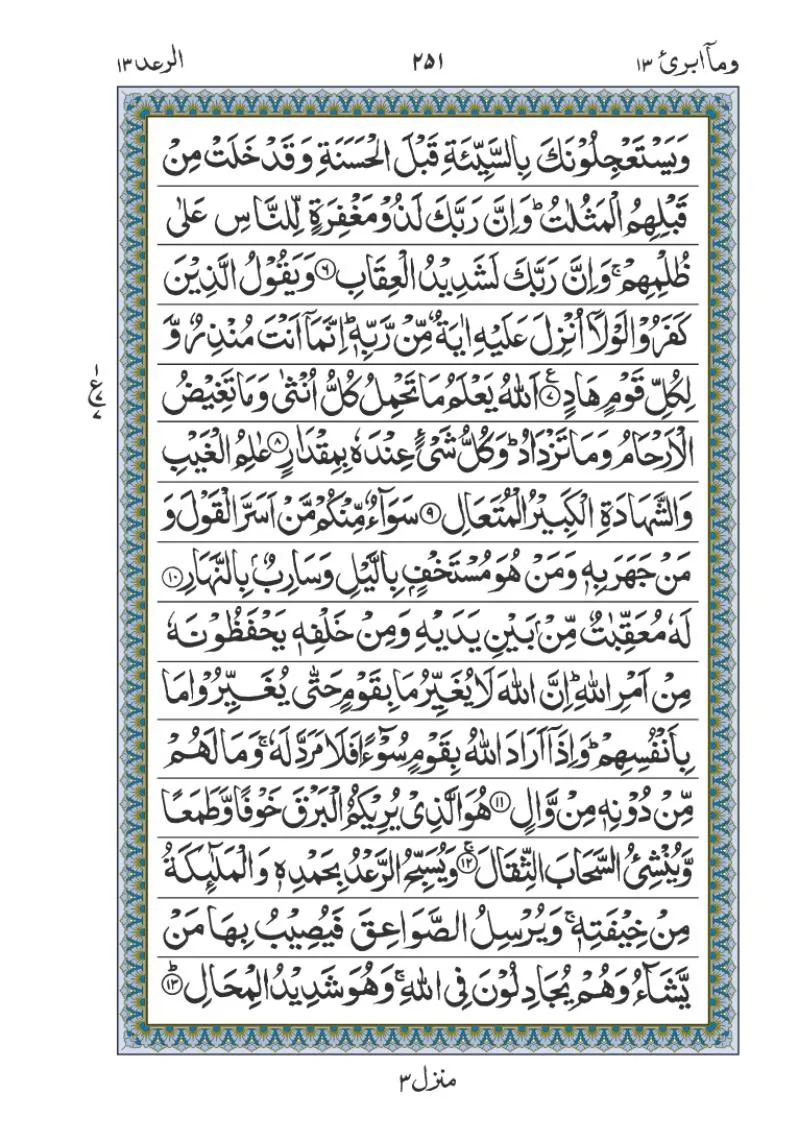 وما ابرئ ۱۳ ۲۵۱ الرعد ۱۳
وَيَسْتَعْجِلُوْنَكَ بِالسَّيِّئَةِ قَبْلَ الْحَسَنَةِ وَقَدْ خَلَتْ مِنْ
قَبْلِهِمُ الْمَثُلٰتُ ؕ وَاِنَّ رَبَّكَ لَذُوْ مَغْفِرَةٍ لِّلنَّاسِ عَلٰى
ظُلْمِهِمْ ۚ وَاِنَّ رَبَّكَ لَشَدِيْدُ الْعِقَابِ ۶ وَيَقُوْلُ الَّذِيْنَ
كَفَرُوْا لَوْلَاۤ اُنْزِلَ عَلَيْهِ اٰيَةٌ مِّنْ رَّبِّهٖ ؕ اِنَّمَاۤ اَنْتَ مُنْذِرٌ وَّ
لِكُلِّ قَوْمٍ هَادٍ ۷ اَللّٰهُ يَعْلَمُ مَا تَحْمِلُ كُلُّ اُنْثٰى وَمَا تَغِيْضُ
ع ۷
الْاَرْحَامُ وَمَا تَزْدَادُ ؕ وَكُلُّ شَیْءٍ عِنْدَهٗ بِمِقْدَارٍ ۸ عٰلِمُ الْغَيْبِ
وَالشَّهَادَةِ الْكَبِيْرُ الْمُتَعَالِ ۹ سَوَآءٌ مِّنْكُمْ مَّنْ اَسَرَّ الْقَوْلَ وَ
مَنْ جَهَرَ بِهٖ وَمَنْ هُوَ مُسْتَخْفٍۭ بِالَّيْلِ وَسَارِبٌۢ بِالنَّهَارِ ۱۰
لَهٗ مُعَقِّبٰتٌ مِّنْۢ بَيْنِ يَدَيْهِ وَمِنْ خَلْفِهٖ يَحْفَظُوْنَهٗ
مِنْ اَمْرِ اللّٰهِ ؕ اِنَّ اللّٰهَ لَا يُغَيِّرُ مَا بِقَوْمٍ حَتّٰى يُغَيِّرُوْا مَا
بِاَنْفُسِهِمْ ؕ وَاِذَاۤ اَرَادَ اللّٰهُ بِقَوْمٍ سُوْٓءًا فَلَا مَرَدَّ لَهٗ ۚ وَمَا لَهُمْ
مِّنْ دُوْنِهٖ مِنْ وَّالٍ ۱۱ هُوَ الَّذِیْ يُرِيْكُمُ الْبَرْقَ خَوْفًا وَّطَمَعًا
وَّيُنْشِئُ السَّحَابَ الثِّقَالَ ۱۲ وَيُسَبِّحُ الرَّعْدُ بِحَمْدِهٖ وَالْمَلٰٓئِكَةُ
مِنْ خِيْفَتِهٖ ۚ وَيُرْسِلُ الصَّوَاعِقَ فَيُصِيْبُ بِهَا مَنْ
يَّشَآءُ وَهُمْ يُجَادِلُوْنَ فِی اللّٰهِ ۚ وَهُوَ شَدِيْدُ الْمِحَالِ ۱۳
منزل ۳